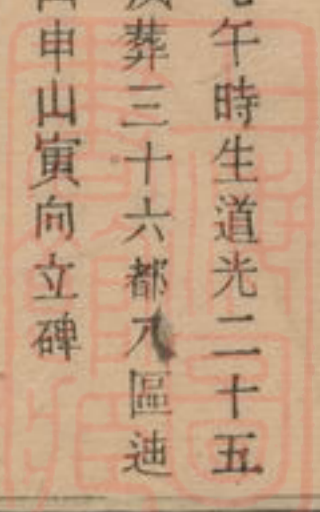 午時生道光二十五
葬三十六都八區迪
申山寅向立碑